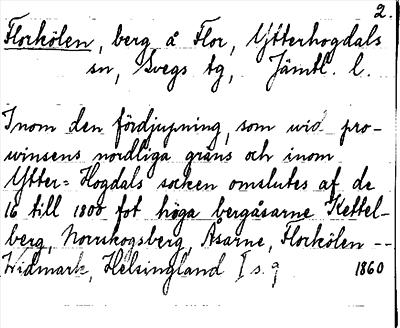 2.
Florkölen, berg å Flor, Ytterhogdals
sn, Svegs tg, Jämtl. l.
Inom den fördjupning, som wid pro-
winsens nordliga gräns och inom
Ytter-Hogdals socken omslutes af de
16 till 1800 fot höga bergåsarne Kettel-
berg, Norrskogsberg, Åsarne, Florkölen --
Widmark, Helsingland I s. 9 1860